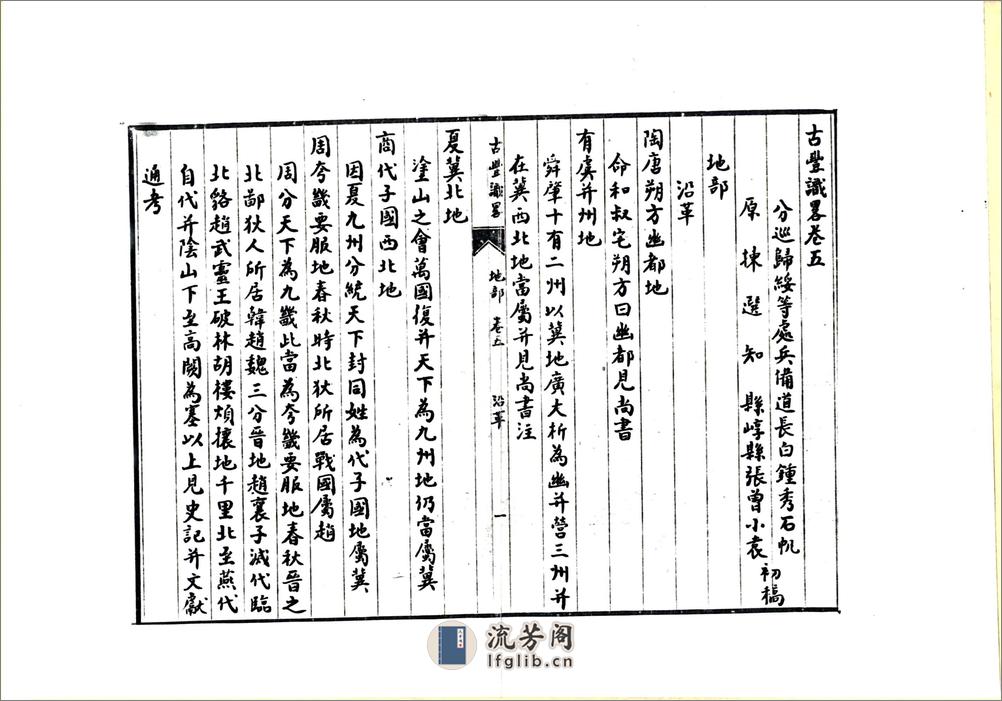 古豐識畧卷五
分巡歸綏等處兵備道長白鍾秀石帆
原揀選知縣崞縣張曾小袁
初稿
地部
沿革
陶唐朔方幽都地
命和叔宅朔方曰幽都見尚書
有虞并州地
舜肇十有二州以冀地廣大析為幽并營三州并
在冀西北地當屬并見尚書注
古豐識畧 地部 卷五 沿革 一
夏冀北地
塗山之會萬國復并天下為九州地仍當屬冀
商代子國西北地
因夏九州分統天下封同姓為代子國地屬冀
周夸畿要服地春秋時北狄所居戰國屬趙
周分天下為九畿此當為夸畿要服地春秋晉之
北鄙狄人所居韓趙魏三分晉地趙襄子滅代臨
北貉趙武靈王破林胡樓煩攘地千里北至燕代
自代并陰山下至高闕為塞以上見史記并文獻
通考
流芳阁
lfglib.cn